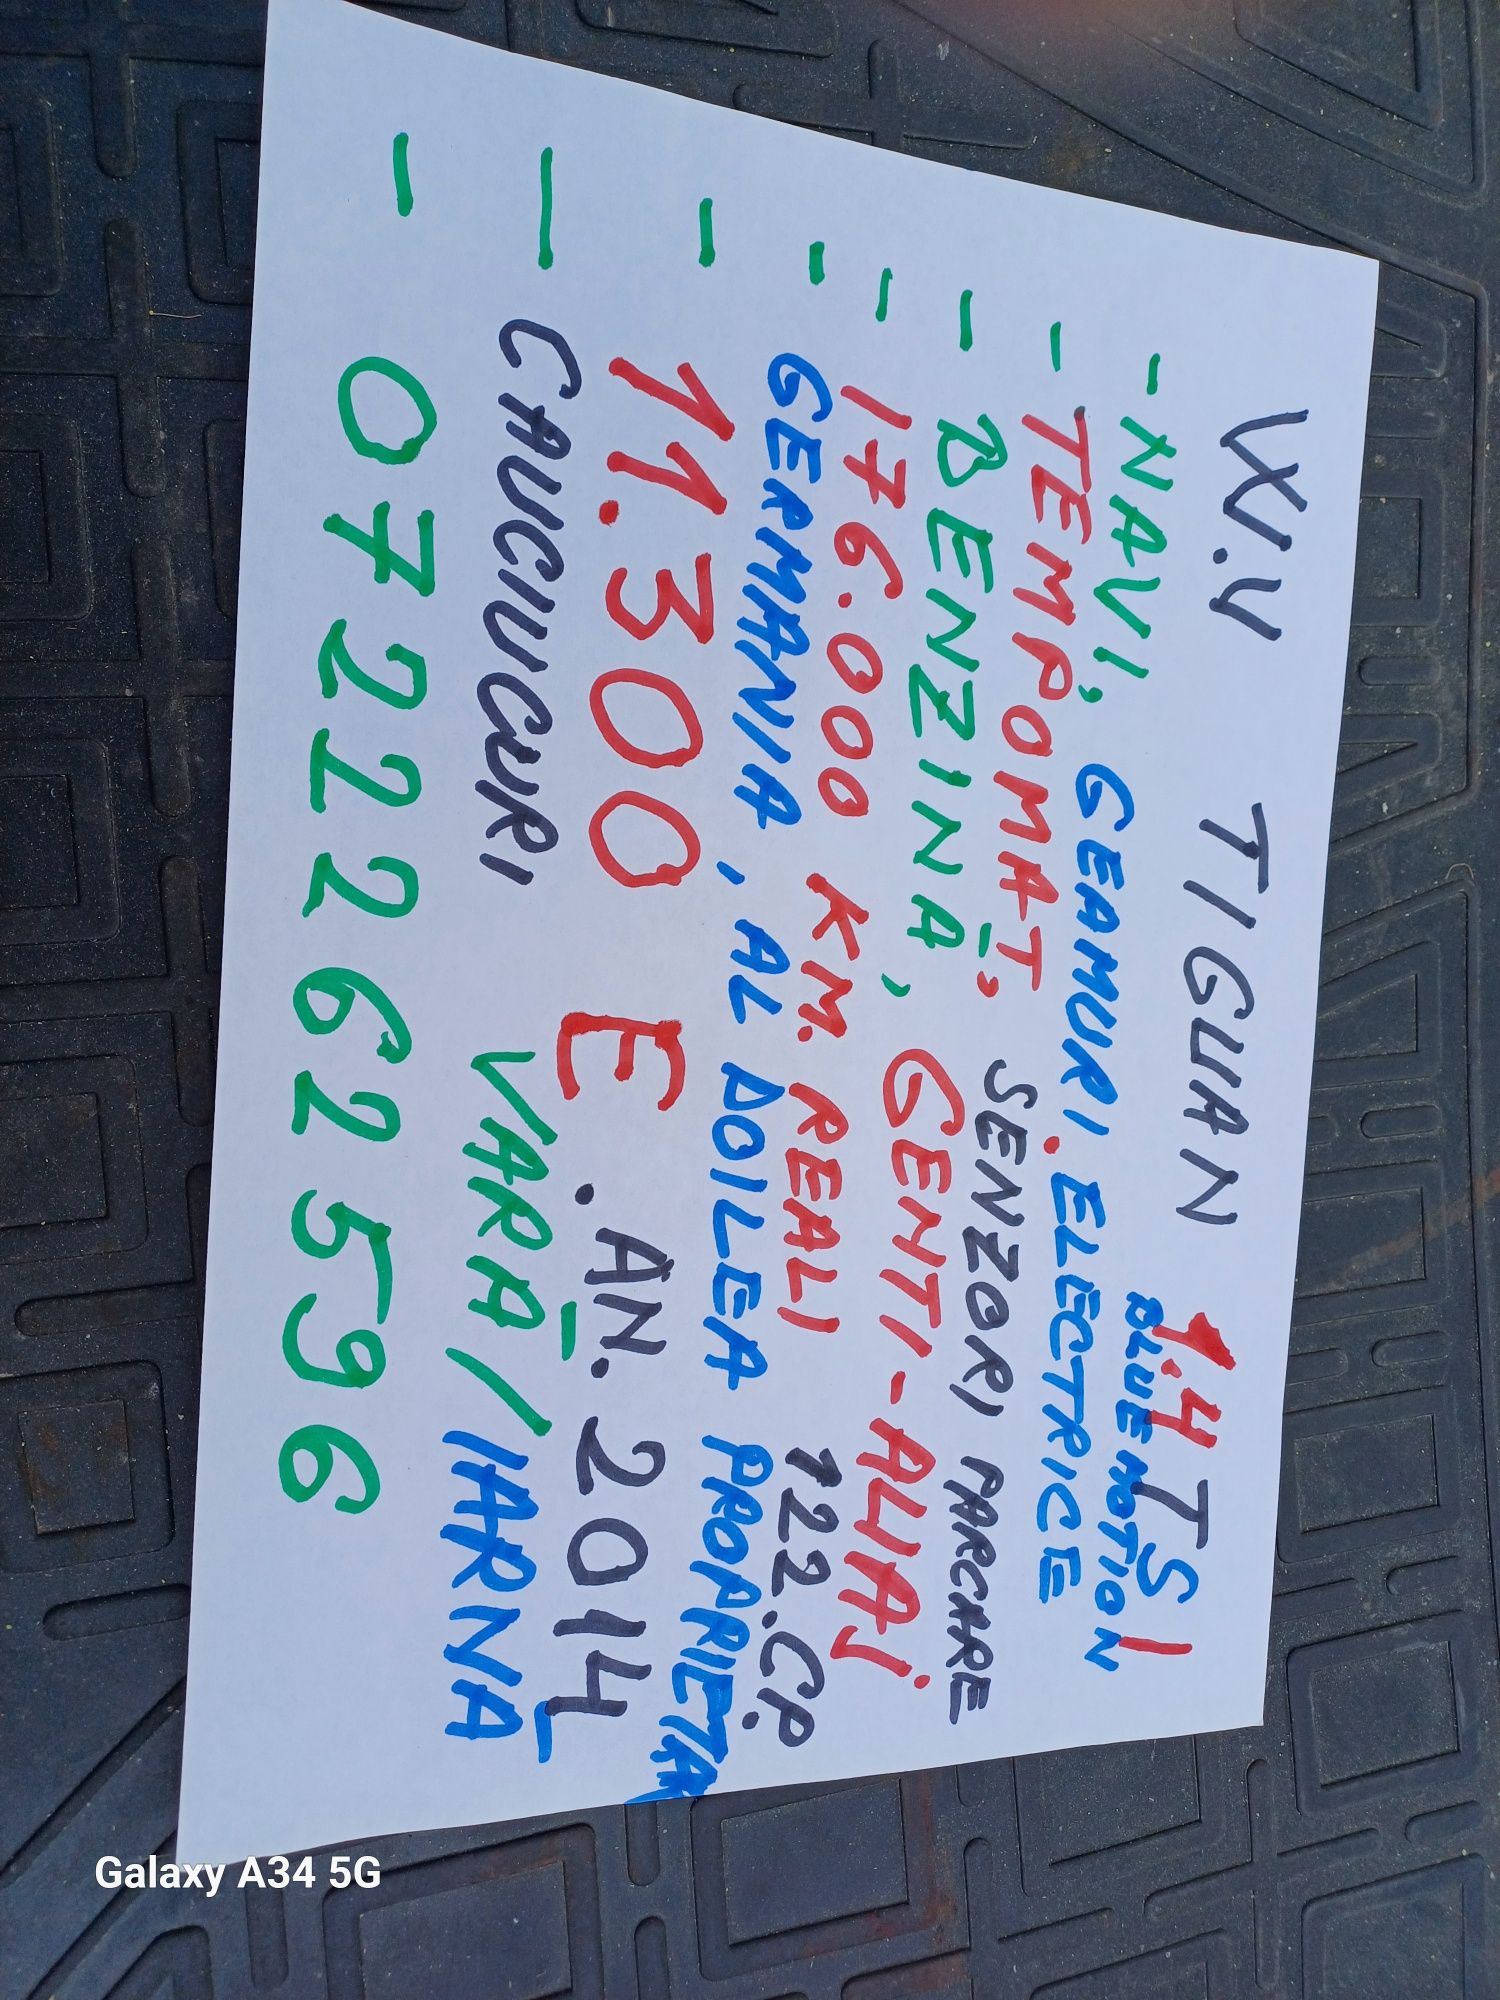 W.V TIGUAN 1.4 TSI
BLUEMOTION
- NAVI, GEAMURI. ELECTRICE
- TEMPOMAT, SENZORI PARCARE
- BENZINĂ, GENTI-ALIAJ.
- 176.000 KM. REALI 122.CP.
- GERMANIA, AL DOILEA PROPRIETAR
- 11.300 E .AN. 2014
- CAUCIUCURI VARĂ/IARNĂ
- 0722262596
Galaxy A34 5G